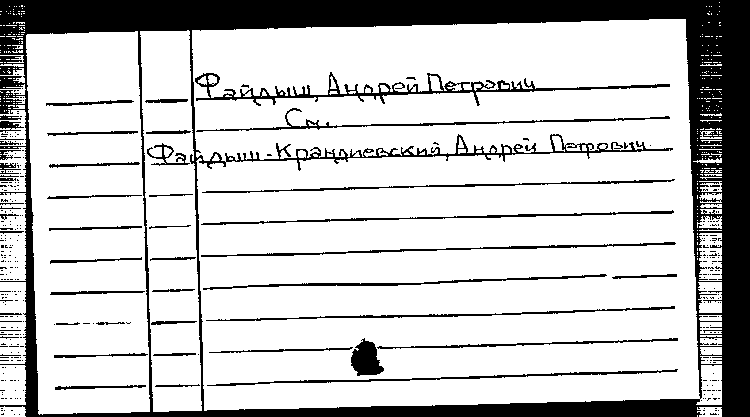 Файдыш, Андрей Петрович
См.
Файдыш-Крандиевский, Андрей Петрович